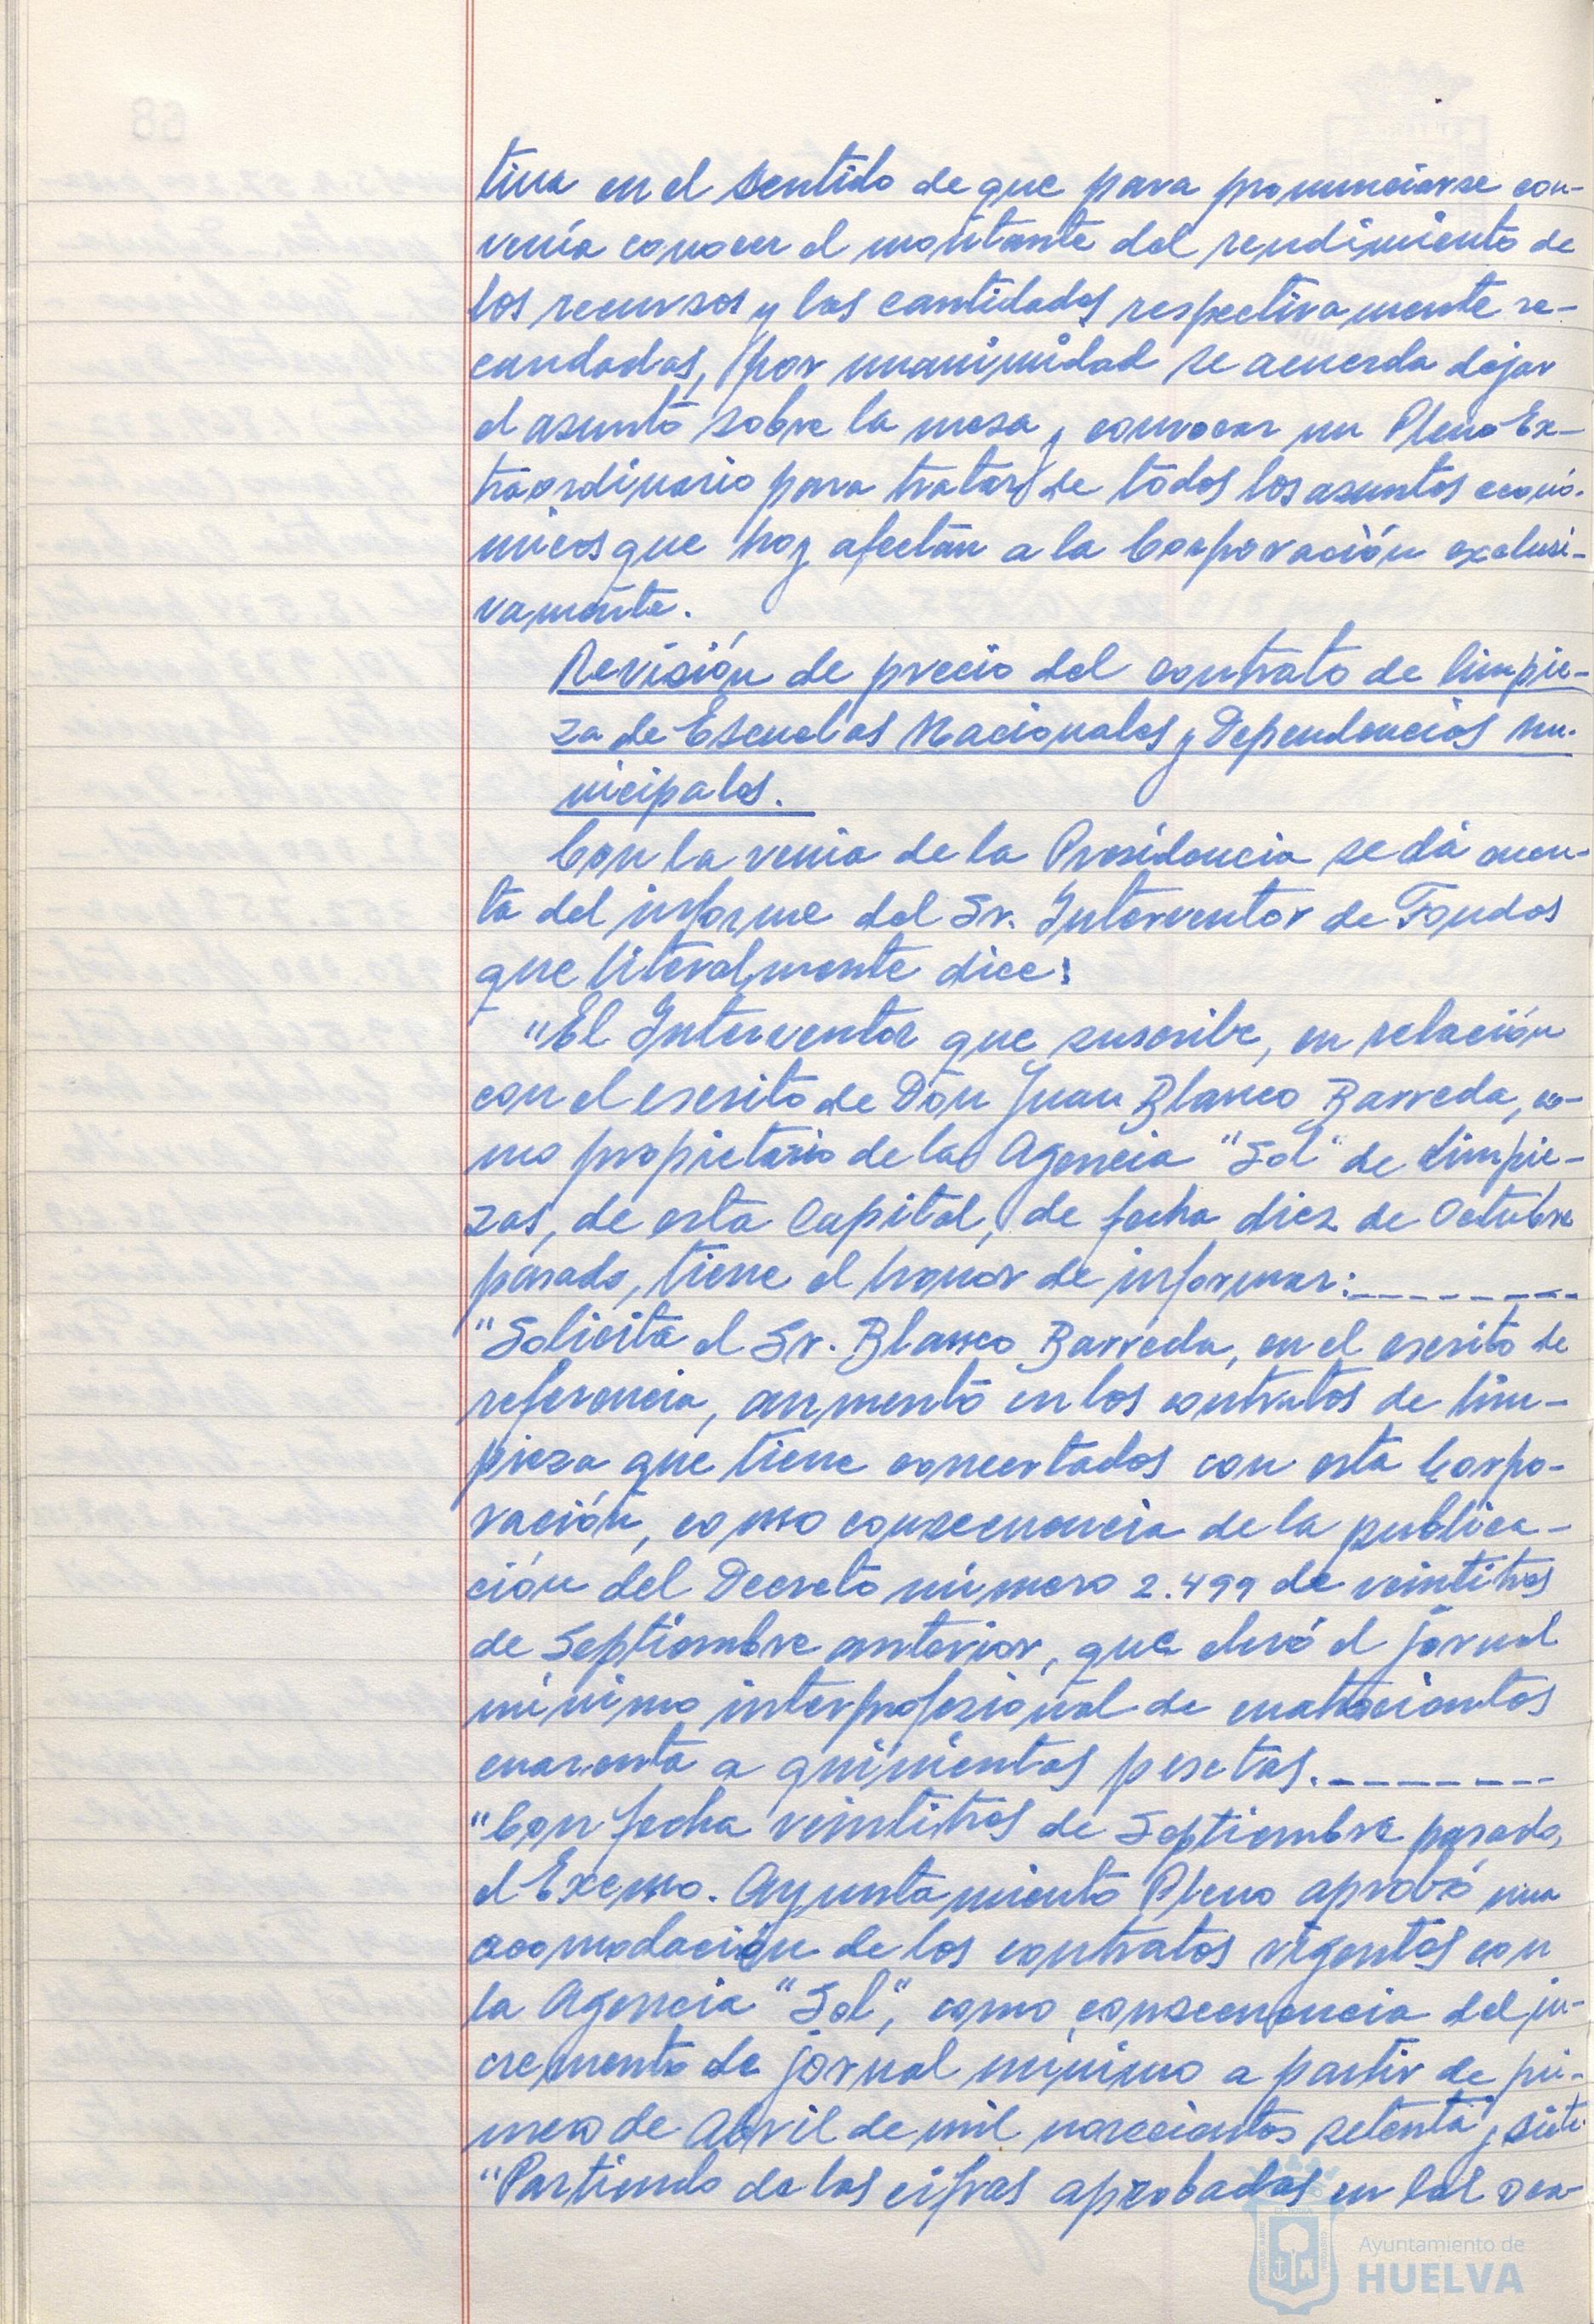 tiva en el sentido de que para pronunciarse con-
venía conocer el montante del rendimiento de
los recursos y las cantidades respectivamente re-
caudadas, por unanimidad se acuerda dejar
el asunto sobre la mesa y convocar un Pleno Ex-
traordinario para tratar de todos los asuntos econó-
micos que hoy afectan a la Corporación exclusi-
vamente.
Revisión de precio del contrato de limpie-
za de Escuelas Nacionales y Dependencias Mu-
nicipales.
Con la venia de la Presidencia se dá cuen-
ta del informe del Sr. Interventor de Fondos
que literalmente dice:
"El Interventor que suscribe, en relación
con el escrito de Don Juan Blanco Barreda, co-
mo propietario de la Agencia "Sol" de Limpie-
zas, de esta Capital, de fecha diez de Octubre
pasado, tiene el honor de informar:
"Solicita el Sr. Blanco Barreda, en el escrito de
referencia, aumento en los contratos de lim-
pieza que tiene concertados con esta Corpo-
ración, como consecuencia de la publica-
ción del Decreto número 2.499 de veintitres
de Septiembre anterior, que elevó el jornal
mínimo interprofesional de cuatrocientas
cuarenta a quinientas pesetas.
"Con fecha veintitrés de Septiembre pasado,
el Excmo. Ayuntamiento Pleno aprobó una
acomodación de los contratos vigentes con
la Agencia "Sol", como consecuencia del in-
cremento de jornal mínimo a partir de pri-
mero de Abril de mil novecientos setenta y siete.
"Partiendo de las cifras aprobadas en las oca-
Ayuntamiento de
HUELVA